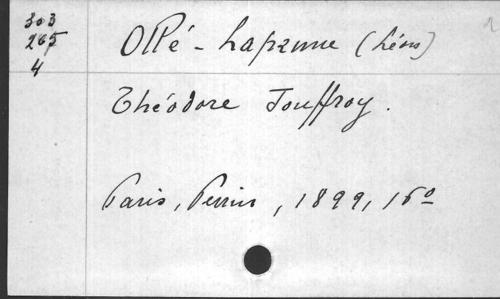 303
265
4
Ollé-Laprune (Léon)
1
Théodore Jouffroy.
Paris, Perrin, 1899, 16º